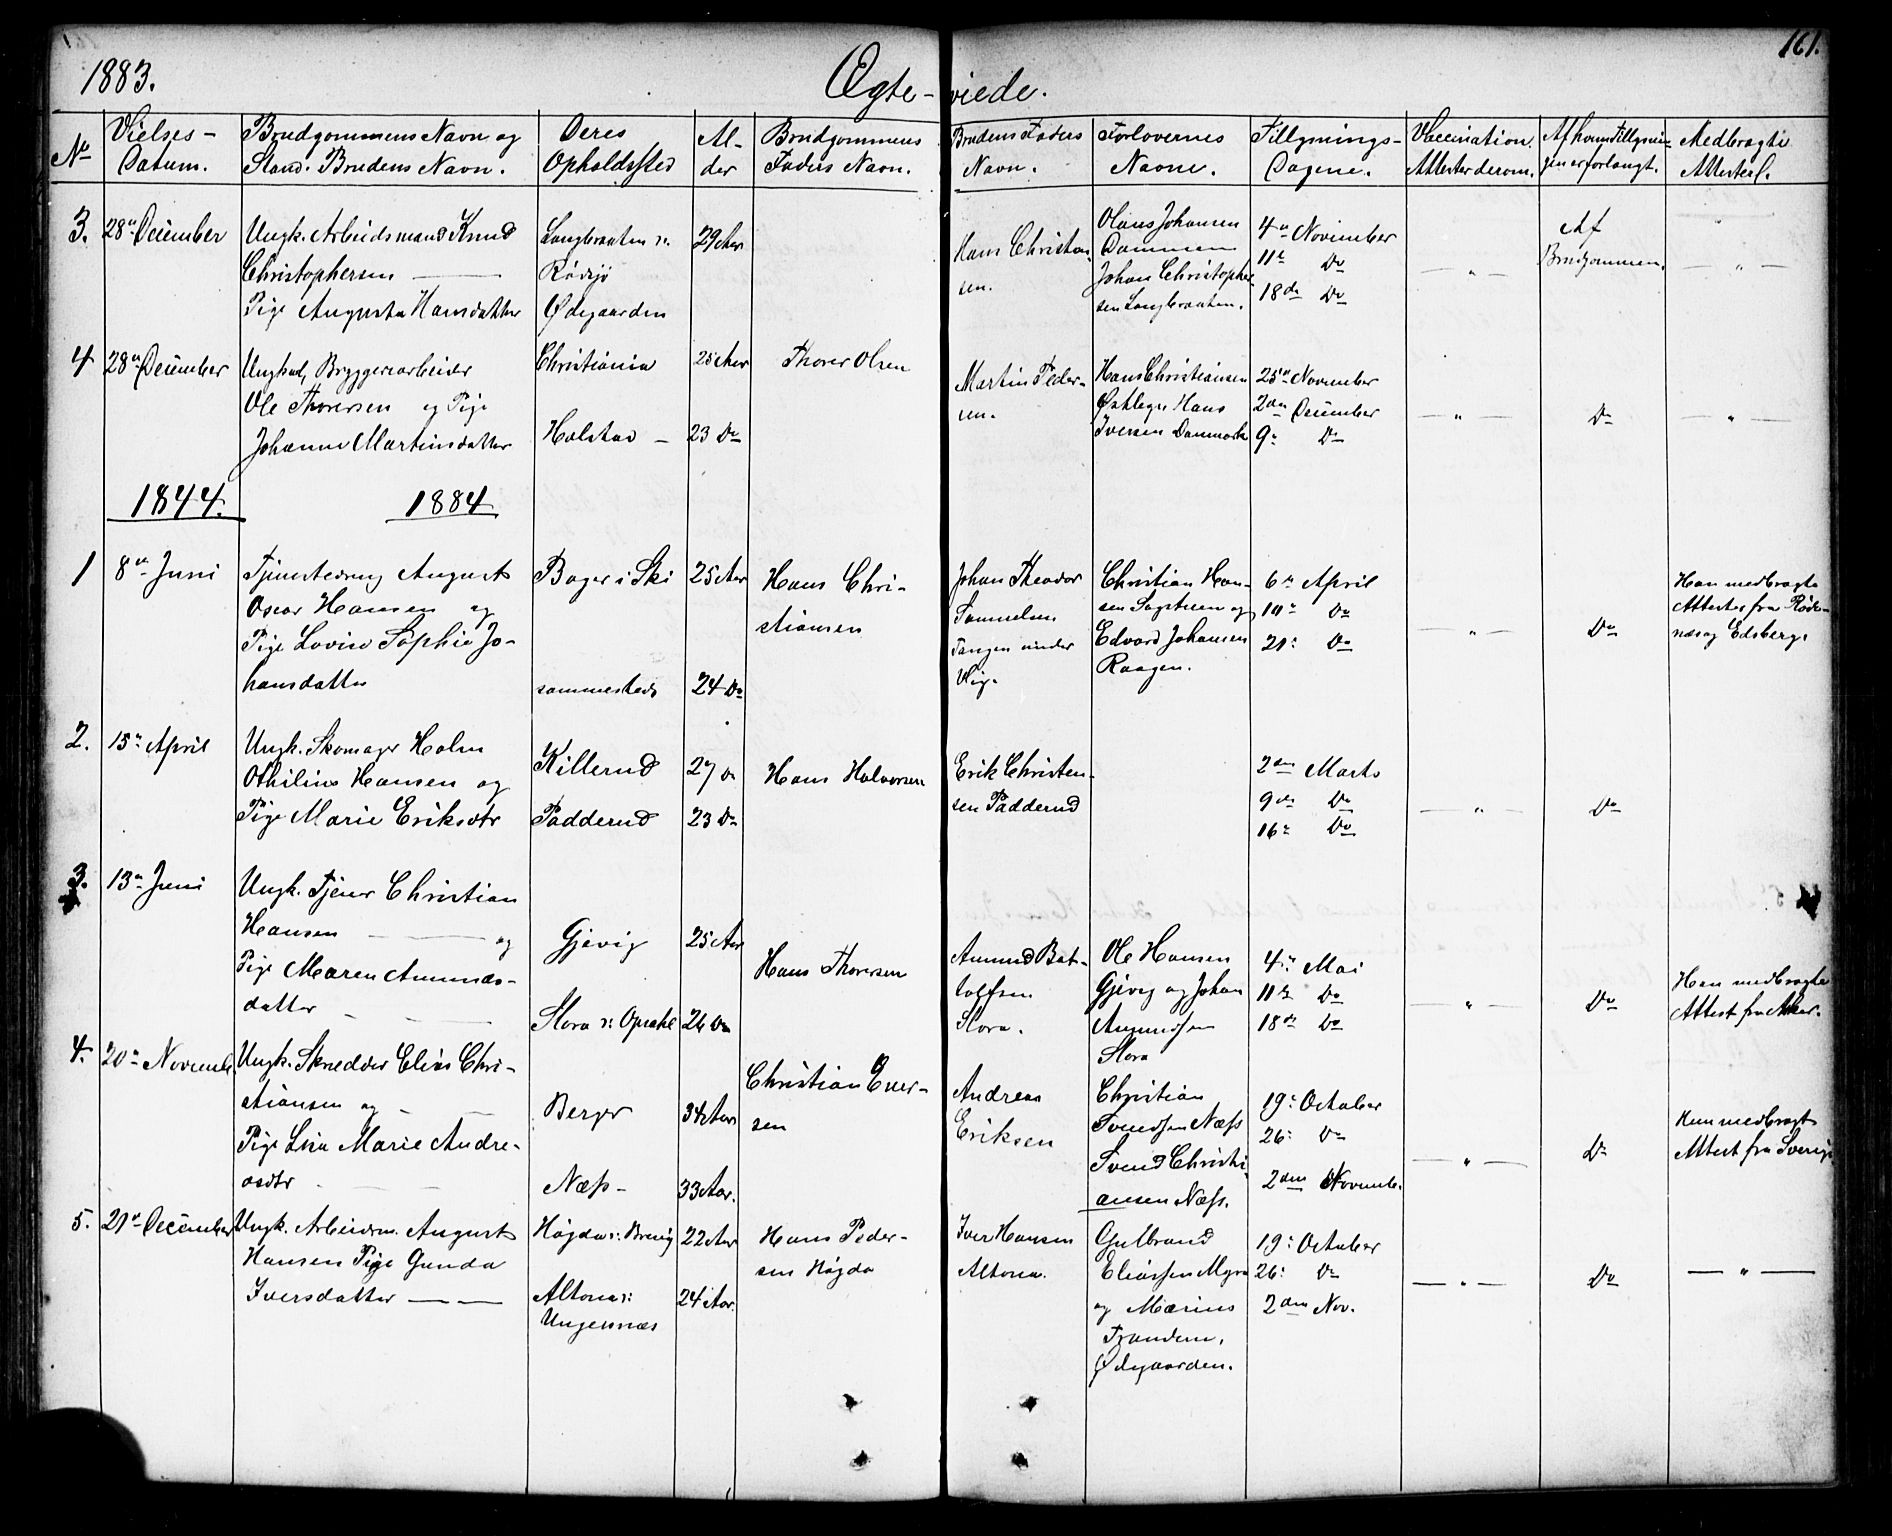 1883.
Ægte-viede.
161.
No
Vielses-
Datum.
Brudgommens Navn og
Stand. Brudens Navn.
Deres
Opholdssted
Al-
der
Brudgommens
Faders Navn.
Brudens Faders
Navn.
Forlovernes
Navne.
Tillysnings-
Dagene.
Vaccination.
Attester derom.
Af hvem Tillysnin-
gen er forlangt.
Medbragte
Attester.
3.
28de December
Ungk. Arbeidsmand Knud
Christophersen
Pige Augusta Hansdatter
Langbraaten v.
Rødsjø
Ødegaarden
29 Aar
Hans Christian-
sen.
Olaus Johansen
Dammen
Johan Christopher-
sen Langbraaten.
4de November
11te Do
18de Do
— " —
Af
Brudgommen.
— " —
4
28de December
Ungkarl, Bryggeriarbeider
Ole Thorersen og Pige
Johanne Martinsdatter
Christiania
Holstad —
25 Aar
23 Do
Thorer Olsen
Martin Peder-
sen.
Hans Christiansen
Østbye Hans
Iversen Danmark
25de November
2den December
9de Do
— " —
Do
— " —
1844.
1884
1
8de Juni
Tjenestedreng August
Oscar Hansen og
Pige Lovise Sophie Jo-
hansdatter
Bager i Ski
sammesteds
25 Aar
24 Do
Hans Chri-
stiansen
Johan Theodor
Samuelsen
Tangen under
Vig.
Christian Han-
sen Sagstuen og
Edvard Johansen
Kaagen.
6te April
10de Do
21: Do
— " —
Do
Han medbragte
Attester fra Røde-
næs og Edsberg.
2.
15de April
Ungk. Skomager Holm
Othilius Hansen og
Pige Marie Eriksdtr
Killerud
Padderud
27 Do
23 Do
Hans Halvorsen
Erik Christen-
sen Padderud
2den Marts
9de Do
16de Do
— " —
Do
3.
13de Juni
Ungk. Tjener Christian
Hansen — og
Pige Maren Amunds-
datter
Gjevig
Slora v. Opsahl
25 Aar
26 Do
Hans Thoresen
Amund Bot-
tolfsen
Slora.
Ole Hansen
Gjevig og Johan
Amundsen
Slora
4de Mai
11te Do
18de Do
— " —
Do
Han medbragte
Attest fra Aker.
4.
20de Novemb.
Ungk. Skredder Elias Chri-
stiansen og
Pige Lisa Marie Andre-
asdtr
Berger
Næss —
34 Aar
33 Aar.
Christian Ever-
sen
Andreas
Eriksen
Christian
Svendsen Næss
Svend Christi-
ansen Næss.
19de October
26: Do
2den Novemb.
— " —
Do
Han medbragt
Attest fra Sverige
5.
21de December
Ungk. Arbeidsm. August
Hansen Pige Gunda
Iversdatter ——
Højda v. Brevig
Altona v:
Ungersnæs
22 Aar
24 Aar.
Hans Peder-
sen Højda
Iver Hansen
Altona.
Gulbrand
Eliassen Myra
og Marius
Trandem,
Ødegaarden.
19de October
26: Do
2den Nov.
— " —
Do
— " —